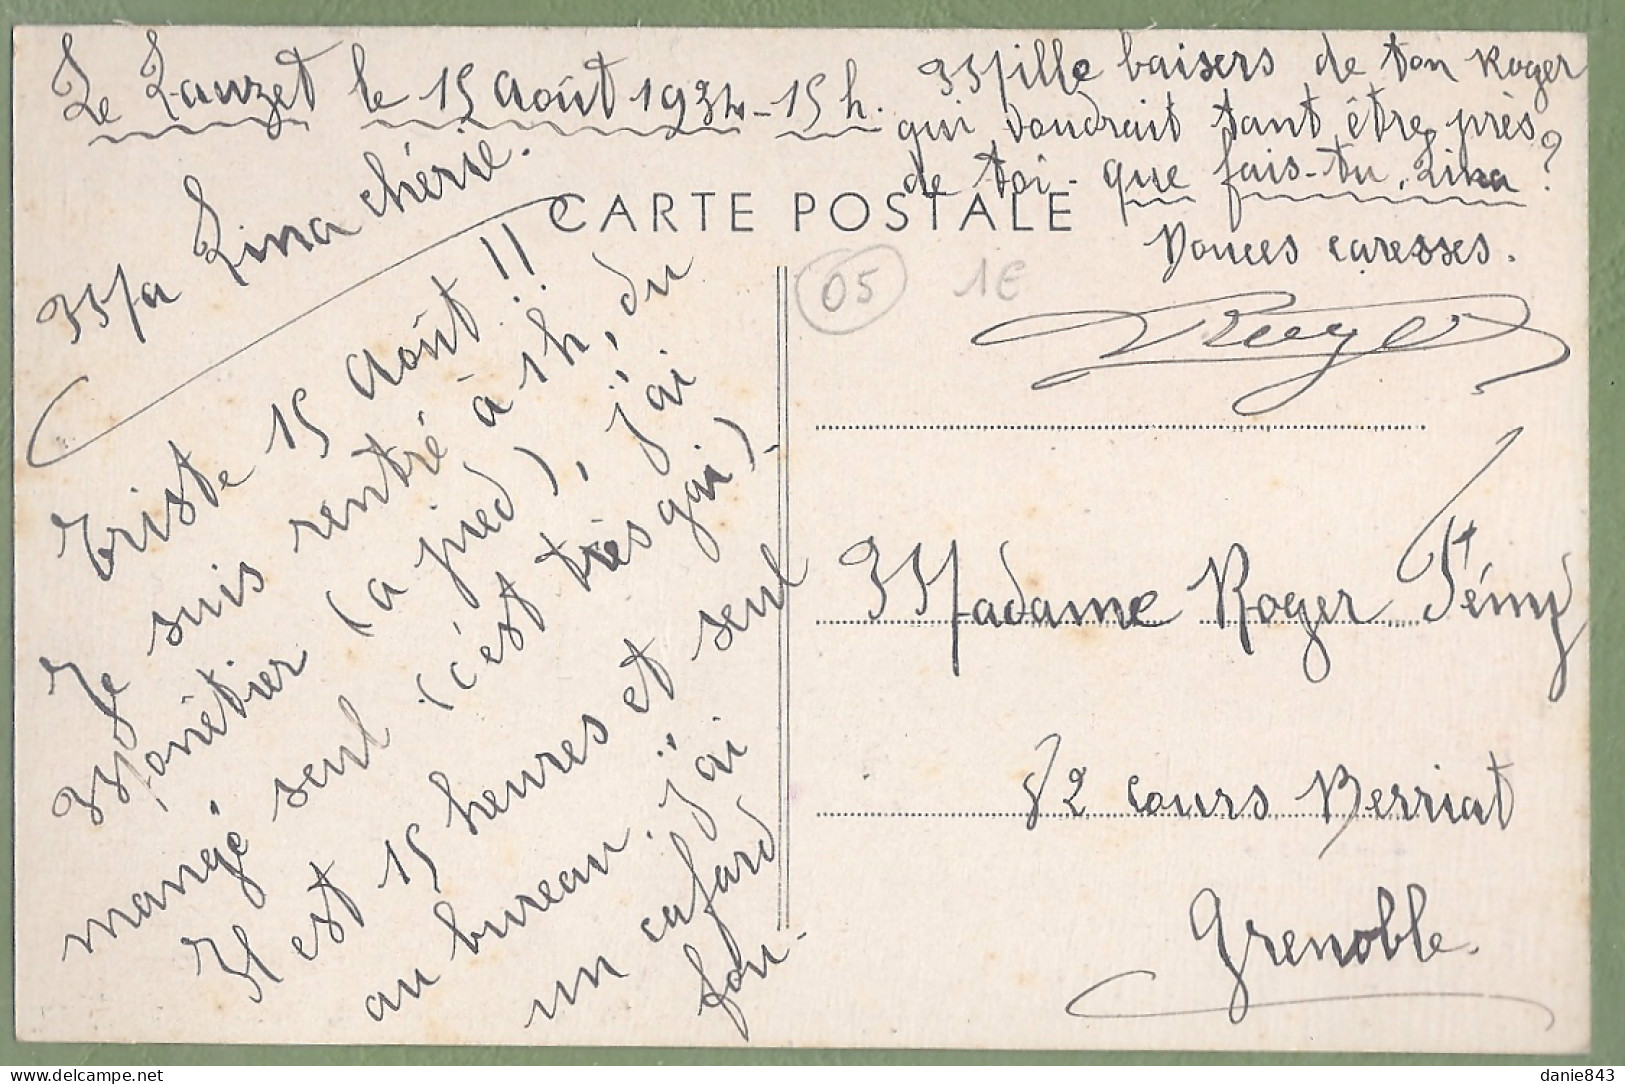 Le Lauzet le 15 Août 1934 - 15 h.
Ma Lina chérie.
Triste 15 Août !!
Je suis rentré à 1h, du
Monêtier (a pied), j'ai
mangé seul (c'est très gai).
Il est 15 heures et seul
au bureau. j'ai
un cafard
fou.
Mille baisers de ton Roger
qui voudrait tant être près
de toi - que fais-tu, Lina ?
Douces caresses.
Roger
CARTE POSTALE
05
1E
Madame Roger Fémy
82 cours Berriat
Grenoble.
delcampe.net
danie843